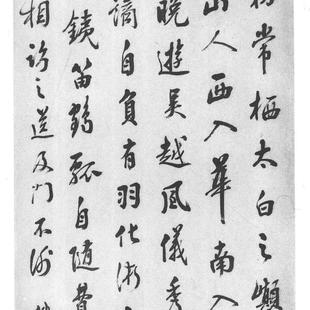 常栖太白之巔
山人西入華南入
晚遊吳越風儀秀
謫自負有羽化術
鐵笛鶴瓢自隨
相訪之送及門不